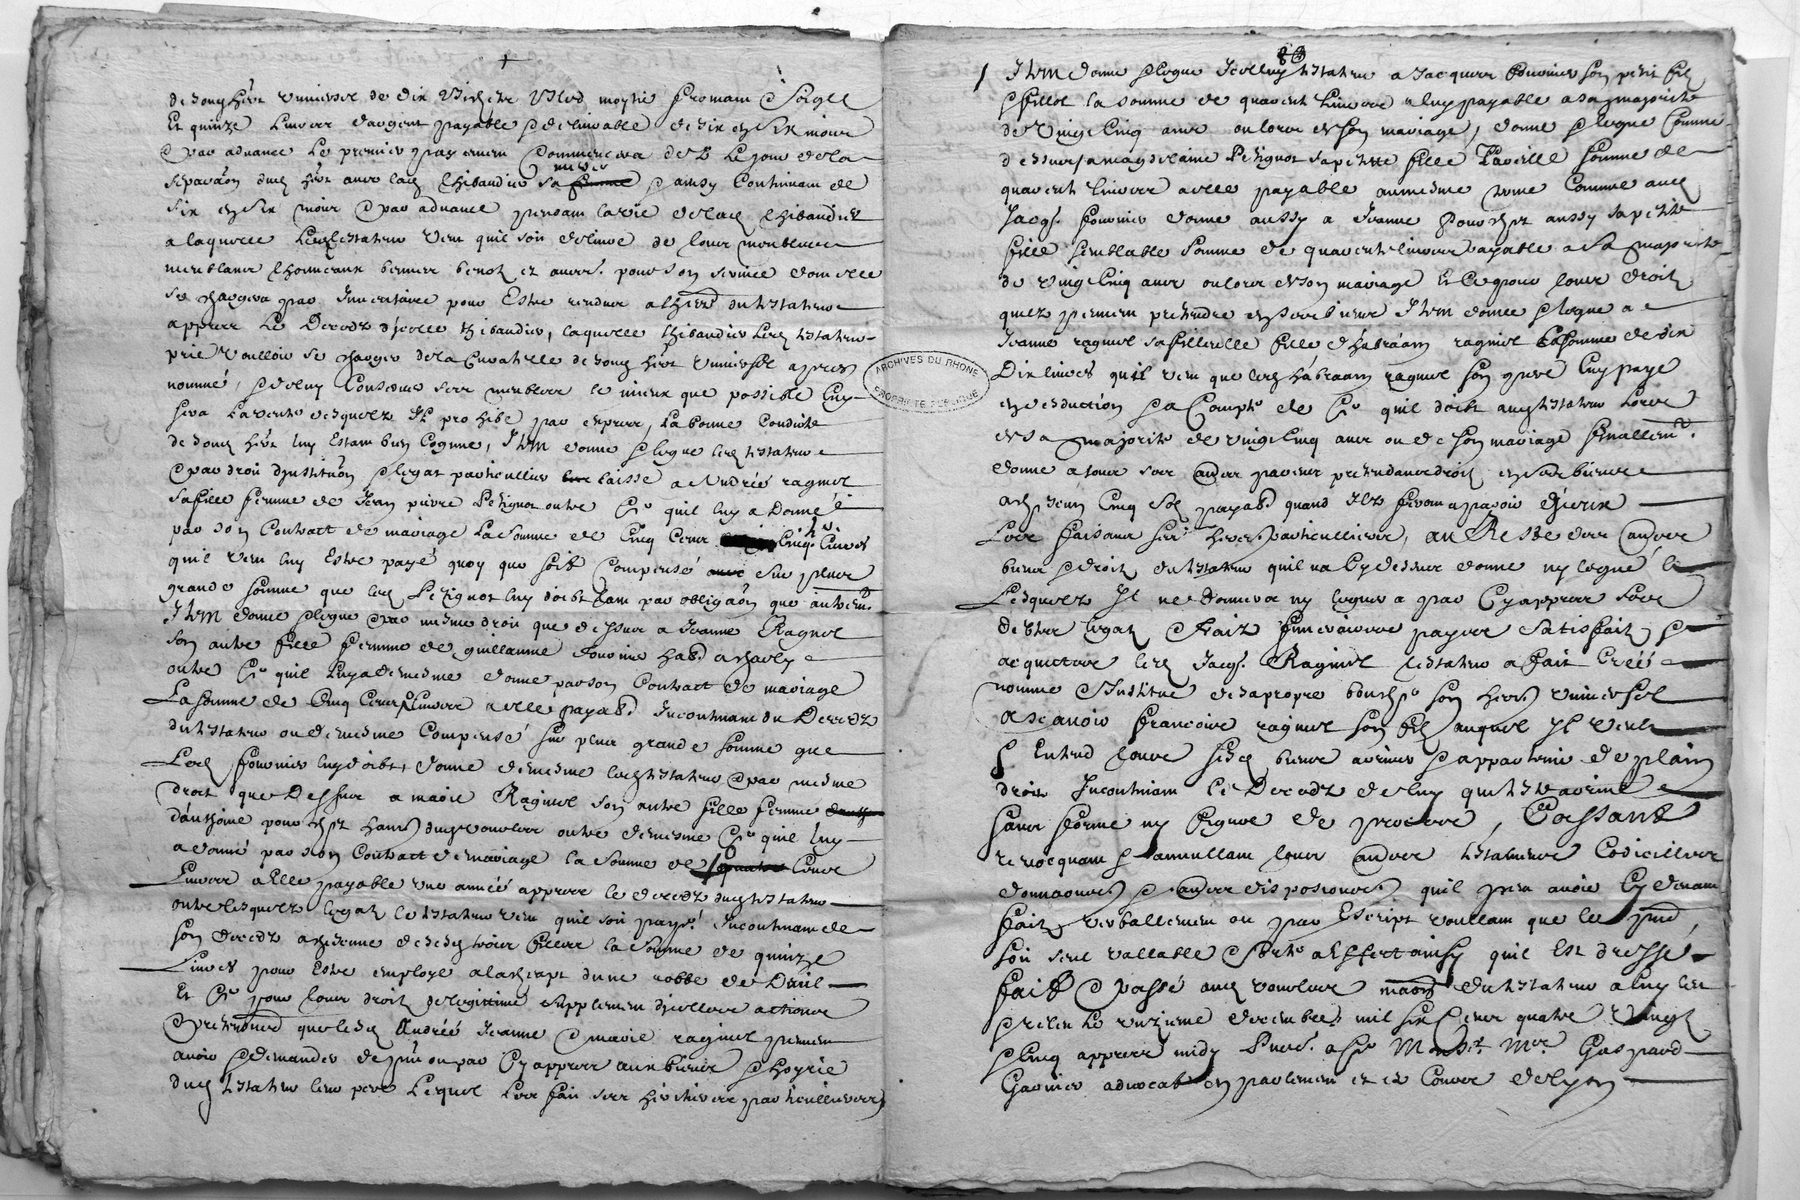 de sond herit universel de dix bichets bled moytié fromant & seigle
Et quinze livres d'argent payable & delivrable de six en six mois
& par advance le premier payement commencera dez le jour de la
separaon dud herit avec lad Thibaudier sa mere & ainsy continuant de
six en six mois & par advance pendant la vie de lad Thibaudier
a laquelle led testateur veut quil soit delivré de leurs meubles
se chargera par Inventaire pour Estre rendus a lhier du testateur
appres le Decedz d'jcelle Thibaudier, laquelle Thibaudier led testateur
prie voulloir se charger de la curatelle de sond herit universel apres
nommé, & de luy conserver ses meubles le mieux que possible luy
sera la vente desquelz Il prohibe par exprers, la bonne conduite
de sond herit luy Estant bien cogneue, Item donne & legue led testateur
& par droit d'jnstitution & legat particullier laisse a Andrée ragniol
sa fille femme de Jean pierre Petignot outre Ce quil luy a Donné
par son Contract de mariage La Somme de Cinq Cent Cinq. Livres
quil veut luy Estre payé quoy que soit Compensé sur plus
grande somme que led Petignot luy doibt tant par obligaon que autremt.
Item donne & legue & par mesme droit que dessus a Jeanne Ragniol
son autre fille femme de guillaume Fournier habt. a charly
outre Ce quil luy a de mesme donné par son Contract de mariage
La somme de Cinq Cent Livres a elle payab. Incontinant du Decedz
du testateur ou de mesme Compensé sur plus grande somme que
Led fournier luy doibt, donne de mesme led testateur & par mesme
droit que Dessus a marie Ragniol son autre fille femme
d'anthoine pourchet outre de mesme Ce quil luy
a donné par son Contract de mariage la somme de Cent
Livres a Elle payable une année appres le decedz dud testateur
outre lesquelz legatz le testateur veut quil soit payé Incontinant
son decedz a chacune de sesd trois filles la somme de quinze
Livres pour Estre employé a lachept dune robbe de Deuil
Et Ce pour leurs droitz de legitime supplement d'jcelle actions
& pretentions que lesd Andrée Jeanne & marie ragniol peuvent
avoir & demander de pnt ou par Cy appres aux biens & hoyrie
dud testateur leur pere Lesquel Les fait ses heritieres particullieres
83
Item donne & legue Jcelluy testateur a Jacques fournier son petit fils
& fillol la somme de quarente Livres a luy payable a sa majorité
de Vingt Cinq ans ou lors de son mariage, donne & legue Comme
dessus a magdelaine Petignot sa petitte fille Pareille somme de
quarente livres a elle payable au mesme terme Comme aud
Jacqs. fournier donne aussy a Jeanne Pourchet aussy sa petite
fille semblable somme de quarente livres payable a sa majorité
de Vingt Cinq ans ou lors de son mariage Et Ce pour leurs droitz
quelz peuvent pretendre en ses biens Item donne & legue a
Jeanne ragniol sa fillieulle fille d'habraam ragniol la somme de
Dix livres quil veut que led habraam ragniol son pere luy paye
en deduction & a Compte de Ce quil doibt aud testateur lors
de sa majorité de vingt Cinq ans ou de son mariage finallemt.
donne a tous ses autres parens pretendans droitz en ses biens
a chacun Cinq solz payab. quand Ilz feront apparoir d'jceux
Les faisant ses hers. particulliers, au Reste des autres
biens & droitz du testateur quil na Cy dessus donné ny legué
Lesquelz Il ne donnera ny leguera par Cy appres ses
debtes legatz fraiz funeraires payés satisfaitz &
acquictés led Jacqs. Ragniol testateur a fait Créé
nommé & Institué de sa propre bouche son herit universel
a scavoir francois ragniol son fils auquel Il veult
& Entend tous sesd biens advenir & appartenir de plain
droit Incontinant le Decedz de luy testateur advenu
sans forme ny figure de procces, Cassant
revocquant & annullant tous autres testamens Codicilles
donnaons & autres dispositions quil peut avoir Cy devant
fait verballement ou par Escript voullant que le pnt
soit seul vallable & sorte a Effect ainsy quil Est dressé
fait & passé aud vourles maison du testateur a luy leu
& releu le unzieme decembre mil six Cens quatre Vingt
& Cinq appres midy Mr. Gaspard
Garnier advocat en parlement et es Cours de Lyon
ARCHIVES DU RHONE
PROPRIETE PUBLIQUE